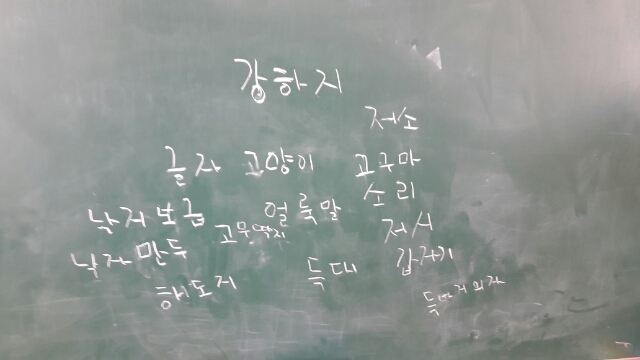 강하지
저소
글자 고양이 고구마
소리
낙지보금 얼룩말
고무딱지 저시
낙자만두 갑자기
늑대
해도지